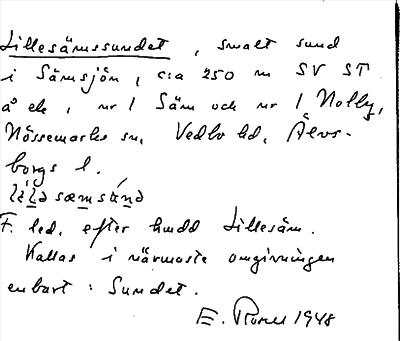 Lillesämssundet, smalt sund
i Sämsjön, c:a 250 m SV ST
å ek, nr 1 Säm och nr 1 Nolby,
Nössemarks sn, Vedbo hd, Älvs-
borgs l.
F. led. efter hmdd Lillesäm.
Kallas i närmaste omgivningen
enbart: Sundet.
E. 1948